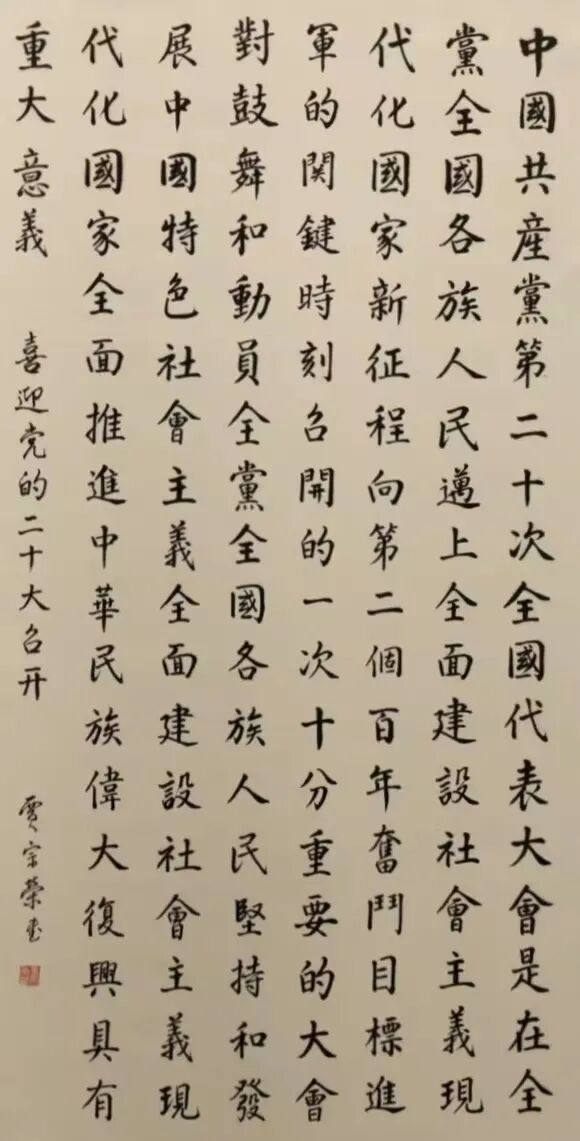 中國共産黨第二十次全國代表大會是在全
黨全國各族人民邁上全面建設社會主義現
代化國家新征程向第二個百年奮鬥目標進
軍的関鍵時刻召開的一次十分重要的大會
對鼓舞和動員全黨全國各族人民堅持和發
展中國特色社會主義全面建設社會主義現
代化國家全面推進中華民族偉大復興具有
重大意義
喜迎党的二十大召开
賈宗榮书